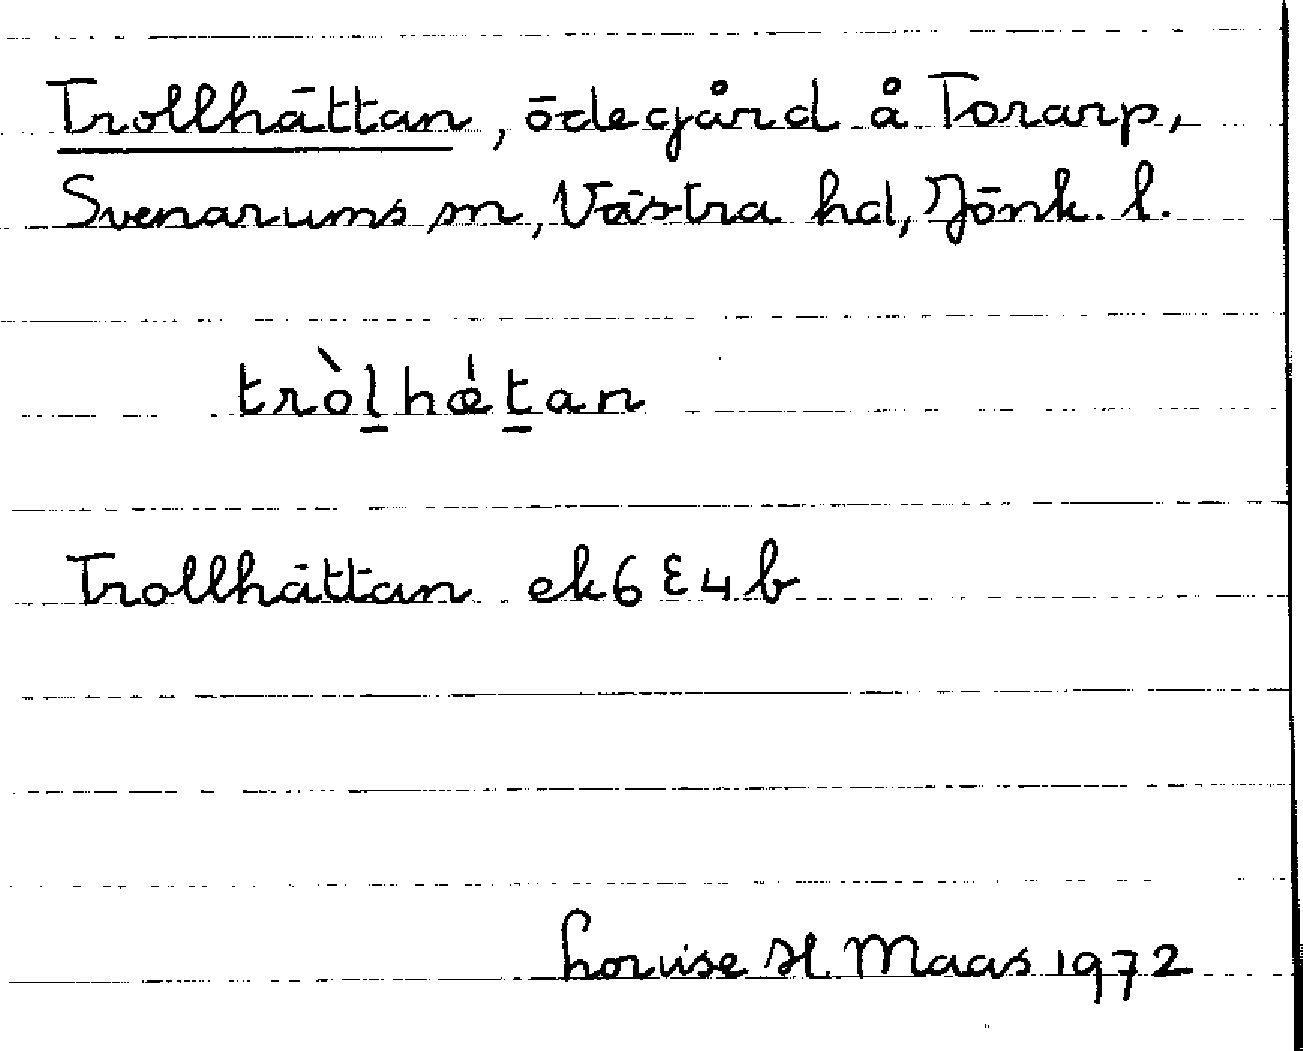 Trollhättan, ödegård å Torarp,
Svenarums sn, Västra hd, Jönk. l.
tròl̠hǽt̠an
Trollhättan ek 6 E 4 b
Louise H. Maas 1972